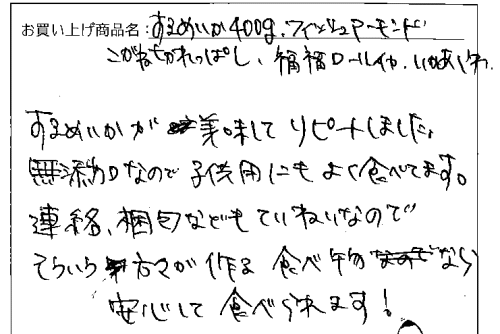 お買い上げ商品名：するめいか400g、フィッシュアーモンド
こがねちがれっぱし、福福ロールイカ、いかあしやわ
するめいかが美味してリピートしました。
無添加なので子供用にもよく食べてます。
連絡、梱包などもていねいなので
そういう方々が作る食べ物なら
安心して食べられます！